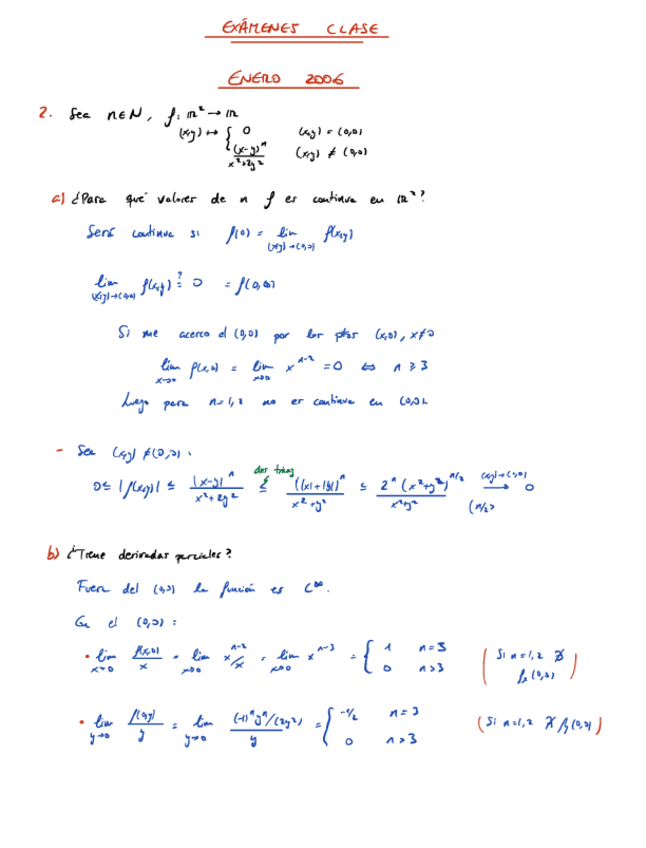 EXÁMENES CLASE
ENERO 2006
2. Sea n∈N, f: ℝ² → ℝ
(x,y) ↦ { 0 (x,y) = (0,0)
(x-y)^n / x²+2y² (x,y) ≠ (0,0)
a) ¿Para qué valores de n f es continua en ℝ²?
Será continua si f(0) = lim (x,y)→(0,0) f(x,y)
lim (x,y)→(0,0) f(x,y) =? 0 = f(0,0)
Si me acerco al (0,0) por los ptos (x,0), x≠0
lim x→0 f(x,0) = lim x→0 x^(n-2) = 0 ⇔ n ≥ 3
Luego para n=1,2 no es continua en (0,0).
- Sea (x,y) ≠ (0,0).
0 ≤ |f(x,y)| ≤ |x-y|^n / x²+2y² ≤ des triang (|x|+|y|)^n / x²+y² ≤ 2^n (x²+y²)^(n/2) / x²+y² → (x,y)→(0,0) 0
b) ¿Tiene derivadas parciales?
Fuera del (0,0) la función es C^∞.
En el (0,0):
• lim x→0 f(x,0)/x = lim x→0 x^(n-2)/x = lim x→0 x^(n-3) = { 1 n=3
0 n>3
(Si n=1,2 ∄ fx(0,0))
• lim y→0 f(0,y)/y = lim y→0 (-1)^n y^n/(2y²) / y = { -1/2 n=3
0 n>3
(Si n=1,2 ∄ fy(0,0))